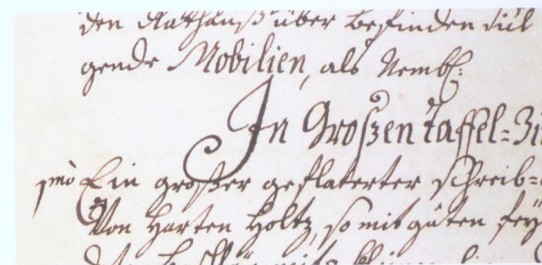 den Rathauß über befinden
gende Mobilien, als Nembl:
In Großen taffel=Zi
1mo Ein großer geflaterter schreib=
Von harten Holtz, so mit guten